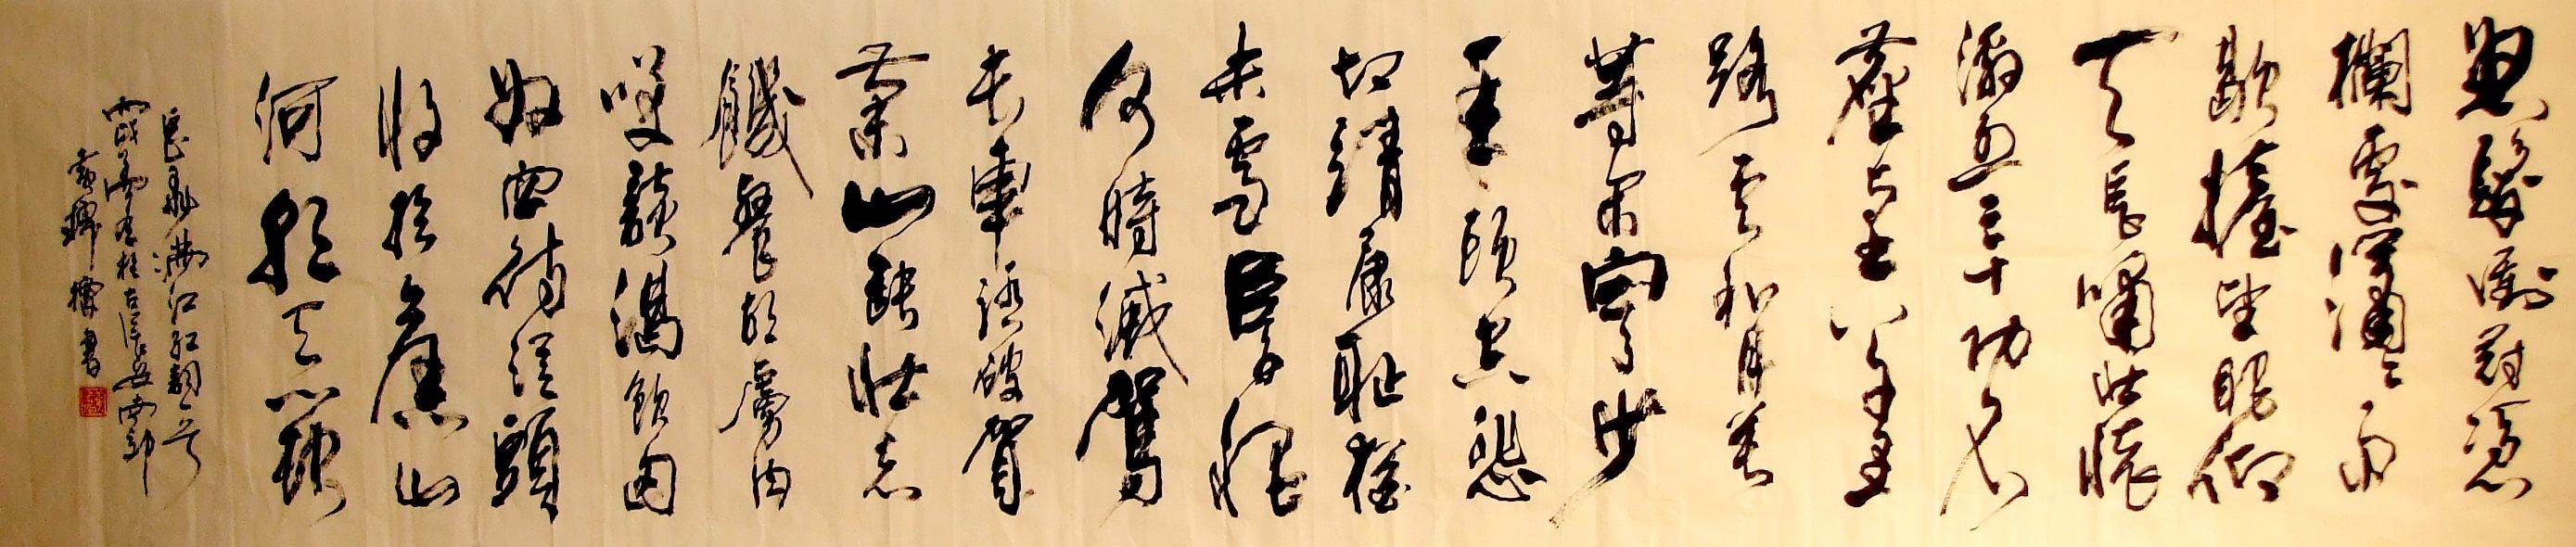 怒髮衝冠憑
欄處瀟瀟雨
歇擡望眼仰
天長嘯壯懷
激烈三十功名
塵與土八千里
路雲和月莫
等閒白了少
年頭空悲
切靖康恥猶
未雪臣子恨
何時滅駕
長車踏破賀
蘭山缺壯志
飢餐胡虜肉
笑談渴飲匈
奴血待從頭
收拾舊山
河朝天闕
岳飛滿江紅詞一首
於古長安南郊
書